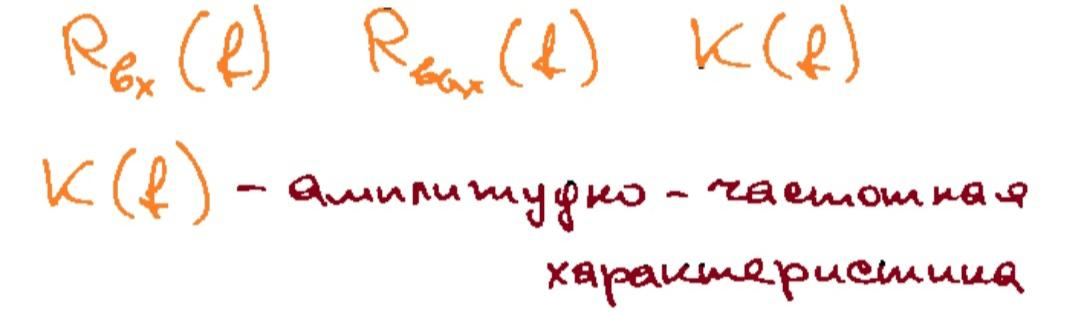 Rвх (f) Rвых (f) K(f)
K(f) - амплитудно - частотная
характеристика